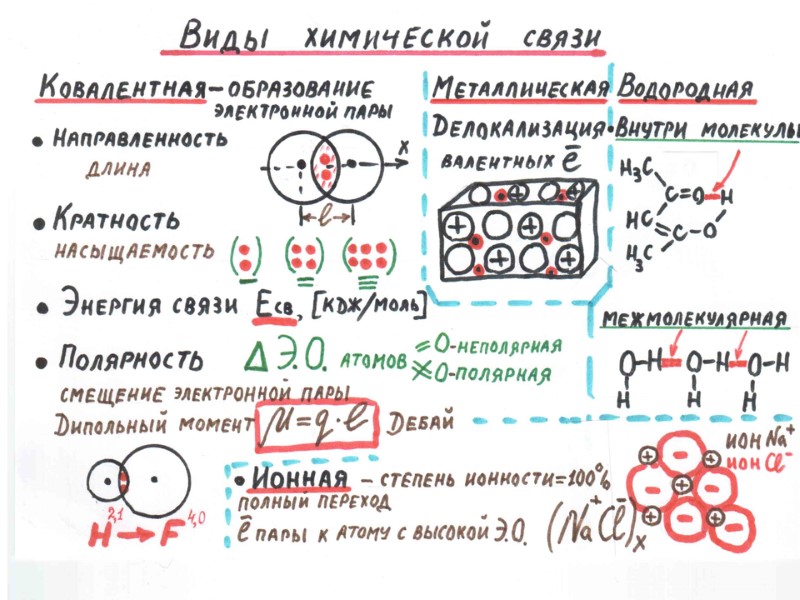 Виды химической связи
Ковалентная – образование
электронной пары
• Направленность
длина
x
l
• Кратность
насыщаемость
• Энергия связи Eсв, [кДж/моль]
• Полярность Δ Э.О. атомов
=0-неполярная
≠0-полярная
смещение электронной пары
Дипольный момент μ=q·l Дебай
2,1 4,0
H → F
Металлическая
Делокализация
валентных ē
Водородная
• Внутри молекулы
H₃C
C=O–H
HC
C–O
H₃C
межмолекулярная
O–H O–H O–H
H H H
• Ионная – степень ионности=100%
полный переход
ē пары к атому с высокой Э.О. (Na⁺Cl⁻)x
ион Na⁺
ион Cl⁻